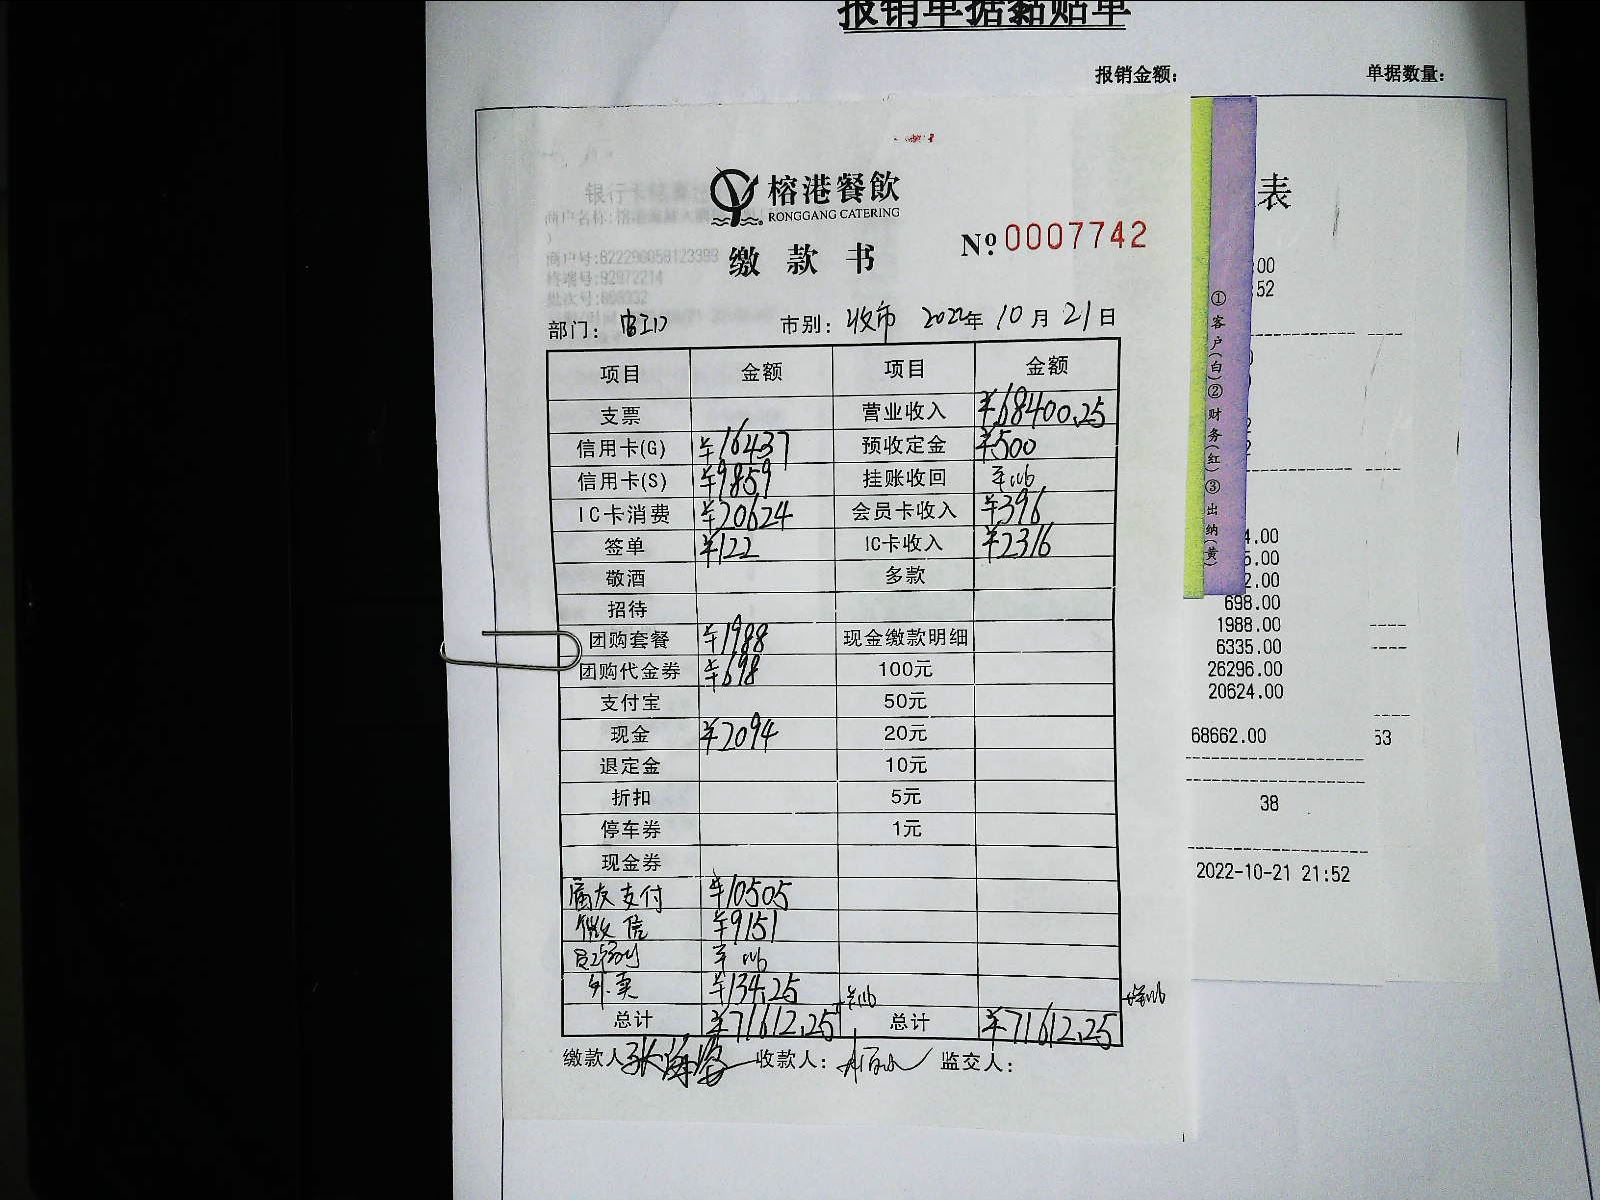 报销单据黏贴单
报销金额： 单据数量：
榕港餐飲
RONGGANG CATERING
缴款书
№ 0007742
商户号:822290058123393
终端号:92872214
部门： 市别：收市 2022年10月21日
项目 金额 项目 金额
支票 营业收入 ¥68400.25
信用卡(G) ¥16437 预收定金 ¥500
信用卡(S) ¥9859 挂账收回
IC卡消费 ¥20624 会员卡收入 ¥396
签单 ¥122 IC卡收入 ¥2316
敬酒 多款
招待
团购套餐 ¥1988 现金缴款明细
团购代金券 ¥698 100元
支付宝 50元
现金 ¥2094 20元
退定金 10元
折扣 5元
停车券 1元
现金券
支付 ¥10505
微信 ¥9151
外卖 ¥134.25
总计 ¥71612.25 总计 ¥71612.25
缴款人 收款人： 监交人：
①客户(白)②财务(红)③出纳(黄)
表
:00
:52
4.00
5.00
2.00
698.00
1988.00
6335.00
26296.00
20624.00
68662.00 53
38
2022-10-21 21:52